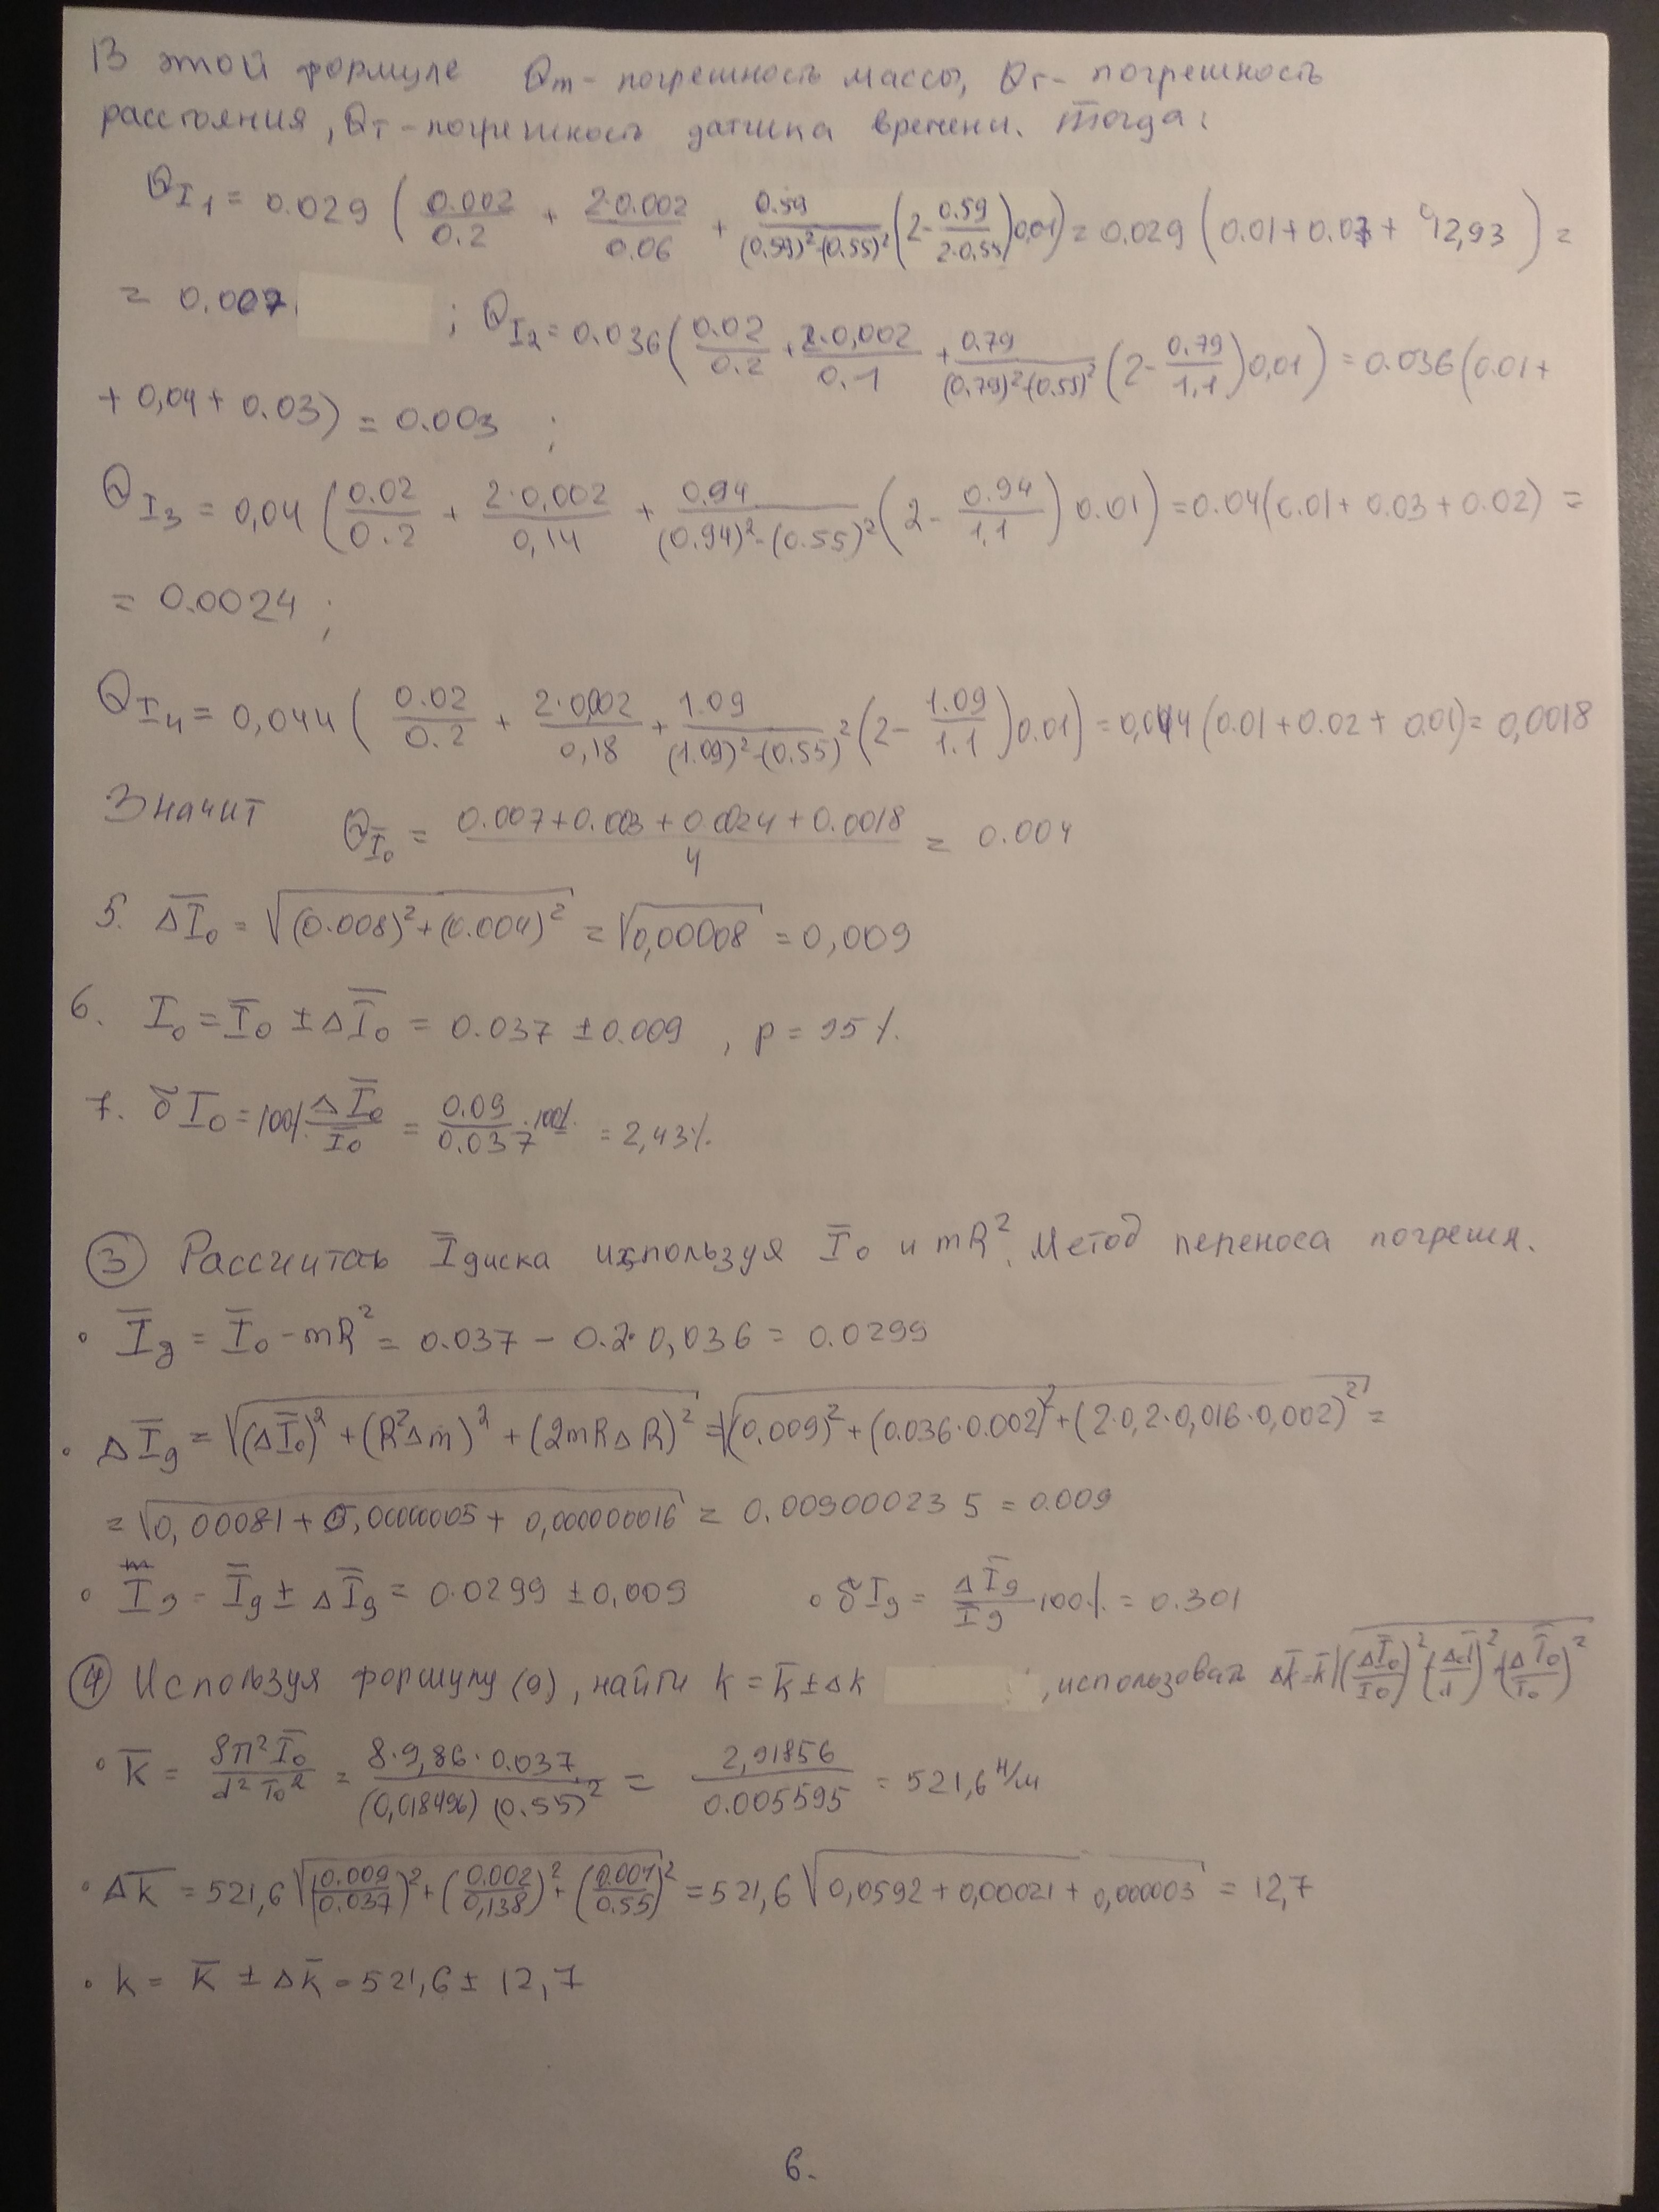 В этой формуле Θm - погрешность массы, Θr - погрешность
расстояния, Θт - погрешность датчика времени. Тогда:
Θ_I₁ = 0.029 (0.002/0.2 + 2·0.002/0.06 + 0.59/((0.59)²-(0.55)²) (2 - 0.59/2·0.55) 0,01) = 0.029 (0.01 + 0.07 + 12,93) =
= 0.007 ; Θ_I₂ = 0.036 (0.02/0.2 + 2·0,002/0.1 + 0.79/((0.79)²-(0.55)²) (2 - 0.79/1,1) 0,01) = 0.036 (0.01 +
+ 0,04 + 0.03) = 0.003 ;
Θ_I₃ = 0,04 (0.02/0.2 + 2·0,002/0,14 + 0.94/((0.94)²-(0.55)²) (2 - 0.94/1,1) 0.01) = 0.04 (0.01 + 0.03 + 0.02) =
= 0.0024 ;
Θ_I₄ = 0,044 (0.02/0.2 + 2·0,002/0,18 + 1.09/((1.09)²-(0.55)²) (2 - 1.09/1.1) 0.01) = 0,044 (0.01 + 0.02 + 0.01) = 0,0018
Значит Θ_I̅₀ = (0.007 + 0.003 + 0.0024 + 0.0018)/4 = 0.004
5. ΔI̅₀ = √((0.008)² + (0.004)²) = √0,00008 = 0,009
6. I₀ = I̅₀ ± ΔI̅₀ = 0.037 ± 0.009 , p = 95%.
7. δI₀ = 100% ΔI̅₀/I̅₀ = 0.09/0.037 · 100% = 2,43%
③ Рассчитать I̅диска используя I̅₀ и mR². Метод переноса погрешн.
• I̅g = I̅₀ - mR² = 0.037 - 0.2·0,036 = 0.0299
• ΔI̅g = √((ΔI̅₀)² + (R²Δm)² + (2mRΔR)²) = √((0.009)² + (0.036·0.002)² + (2·0,2·0,016·0,002)²) =
= √(0,00081 + 0,00000005 + 0,000000016) = 0.009000235 = 0.009
• I̅g = I̅g ± ΔI̅g = 0.0299 ± 0,009 • δIg = ΔI̅g/I̅g · 100% = 0.301
④ Используя формулу (9), найти k = k̅ ± Δk , использовать Δk̅ = k̅ √((ΔI̅₀/I̅₀)² + (Δd/d)² + (ΔT̅₀/T̅₀)²)
• k̅ = 8π²I̅₀/d²T₀² = 8·9,86·0.037/(0,018496)(0.55)² = 2,91856/0.005595 = 521,6 н/м
• Δk̅ = 521,6 √((0.009/0.037)² + (0.002/0,138)² + (0.001/0.55)²) = 521,6 √(0,0592 + 0,00021 + 0,000003) = 12,7
• k = k̅ ± Δk̅ = 521,6 ± 12,7
6.